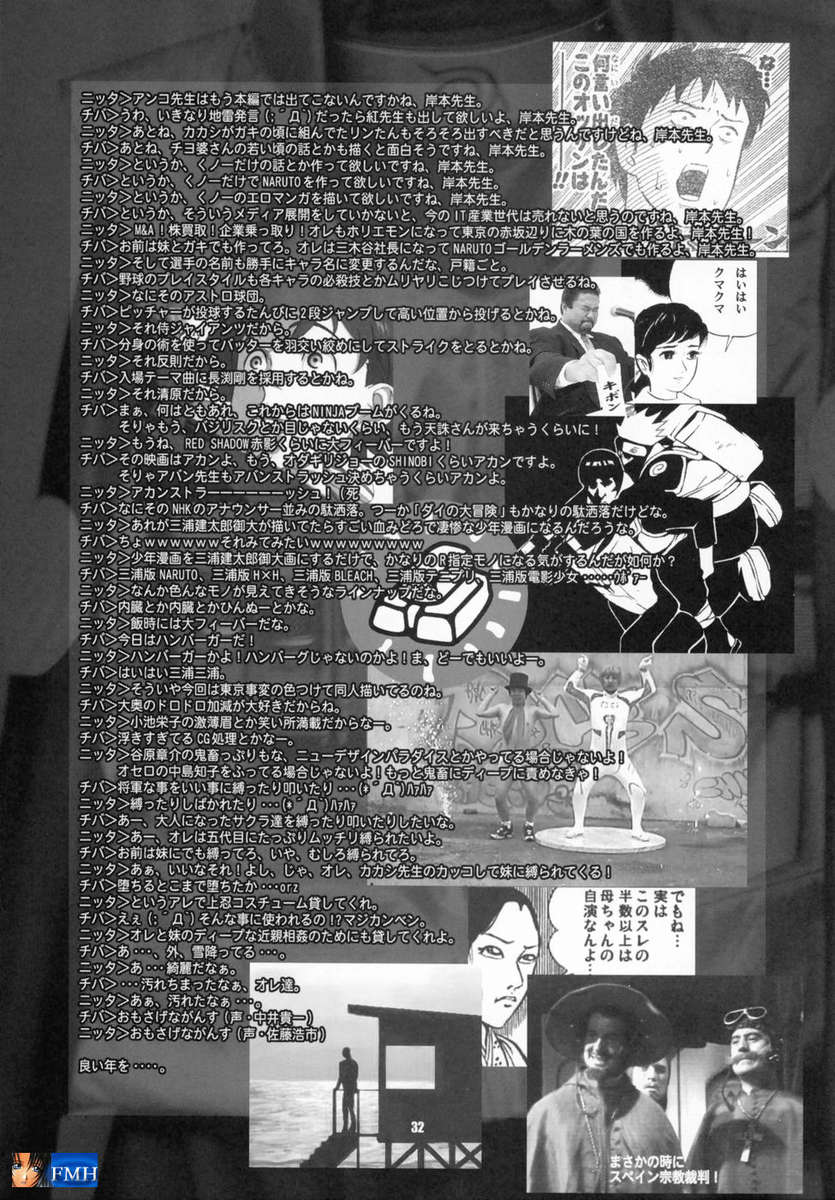 ニッタ＞アンコ先生はもう本編では出てこないんですかね、岸本先生。
チバ＞うわ、いきなり地雷発言(;´Д`)だったら紅先生も出して欲しいよ、岸本先生。
ニッタ＞あとね、カカシがガキの頃に組んでたリンたんもそろそろ出すべきだと思うんですけどね、岸本先生。
チバ＞あとね、チヨ婆さんの若い頃の話とかも描くと面白そうですね、岸本先生。
ニッタ＞というか、くノ一だけの話とか作って欲しいですね、岸本先生。
チバ＞というか、くノ一だけでNARUTOを作って欲しいですね、岸本先生。
ニッタ＞というか、くノ一のエロマンガを描いて欲しいですね、岸本先生。
チバ＞というか、そういうメディア展開をしていかないと、今のIT産業世代は売れないと思うのですね、岸本先生。
ニッタ＞M&A！株買取！企業乗っ取り！オレもホリエモンになって東京の赤坂辺りに木の葉の国を作るよ、岸本先生！
チバ＞お前は妹とガキでも作ってろ。オレは三木谷社長になってNARUTOゴールデンラーメンズでも作るよ、岸本先生。
ニッタ＞そして選手の名前も勝手にキャラ名に変更するんだな、戸籍ごと。
チバ＞野球のプレイスタイルも各キャラの必殺技とかムリヤリこじつけてプレイさせるね。
ニッタ＞なにそのアストロ球団。
チバ＞ピッチャーが投球するたんびに2段ジャンプして高い位置から投げるとかね。
ニッタ＞それ侍ジャイアンツだから。
チバ＞分身の術を使ってバッターを羽交い絞めにしてストライクをとるとかね。
ニッタ＞それ反則だから。
チバ＞入場テーマ曲に長渕剛を採用するとかね。
ニッタ＞それ清原だから。
チバ＞まぁ、何はともあれ、これからはNINJAブームがくるね。
そりゃもう、バジリスクとか目じゃないくらい、もう天誅さんが来ちゃうくらいに！
ニッタ＞もうね、RED SHADOW赤影くらいに大フィーバーですよ！
チバ＞その映画はアカンよ、もう、オダギリジョーのSHINOBIくらいアカンですよ。
そりゃアバン先生もアバンストラッシュ決めちゃうくらいアカンよ。
ニッタ＞アカンストラーーーーーーッシュ！(死
チバ＞なにそのNHKのアナウンサー並みの駄洒落。つーか「ダイの大冒険」もかなりの駄洒落だけどな。
ニッタ＞あれが三浦建太郎御大が描いてたらすごい血みどろで凄惨な少年漫画になるんだろうな。
チバ＞ちょwwwwwwそれみてみたいwwwwwwwww
ニッタ＞少年漫画を三浦建太郎御大画にするだけで、かなりのR指定モノになる気がするんだが如何か？
チバ＞三浦版NARUTO、三浦版H×H、三浦版BLEACH、三浦版テニプリ、三浦版電影少女‥‥‥ｳﾎﾞｧｰ
ニッタ＞なんか色んなモノが見えてきそうなラインナップだな。
チバ＞内臓とか内臓とかひんぬーとかな。
ニッタ＞飯時には大フィーバーだな。
チバ＞今日はハンバーガーだ！
ニッタ＞ハンバーガーかよ！ハンバーグじゃないのかよ！ま、どーでもいいよー。
チバ＞はいはい三浦三浦。
ニッタ＞そういや今回は東京事変の色つけて同人描いてるのね。
チバ＞大奥のドロドロ加減が大好きだからね。
ニッタ＞小池栄子の激薄眉とか笑い所満載だからなー。
チバ＞浮きすぎてるCG処理とかなー。
ニッタ＞谷原章介の鬼畜っぷりもな、ニューデザインパラダイスとかやってる場合じゃないよ！
オセロの中島知子をふってる場合じゃないよ！もっと鬼畜にディープに責めなきゃ！
チバ＞将軍な事をいい事に縛ったり叩いたり‥‥(*´Д`)ﾊｧﾊｧ
ニッタ＞縛ったりしばかれたり‥‥(*´Д`)ﾊｧﾊｧ
チバ＞あー、大人になったサクラ達を縛ったり叩いたりしたいな。
ニッタ＞あー、オレは五代目にたっぷりムッチリ縛られたいよ。
チバ＞お前は妹にでも縛ってろ、いや、むしろ縛られてろ。
ニッタ＞あぁ、いいなそれ！よし、じゃ、オレ、カカシ先生のカッコして妹に縛られてくる！
チバ＞堕ちるとこまで堕ちたか‥‥orz
ニッタ＞というアレで上忍コスチューム貸してくれ。
チバ＞えぇ(;´Д`)そんな事に使われるの！？マジカンベン。
ニッタ＞オレと妹のディープな近親相姦のためにも貸してくれよ。
チバ＞あ‥‥、外、雪降ってる‥‥。
ニッタ＞あ‥‥綺麗だなぁ。
チバ＞‥‥汚れちまったなぁ、オレ達。
ニッタ＞あぁ、汚れたなぁ‥‥。
チバ＞おもさげながんす(声・中井貴一)
ニッタ＞おもさげながんす(声・佐藤浩市)
良い年を‥‥。
な…
何言い出してんだ
このオッサンは!!
はいはい
クマクマ
キボン
でもね…
実は
このスレの
半数以上は
母ちゃんの
自演なんよ…
まさかの時に
スペイン宗教裁判！
32
FMH